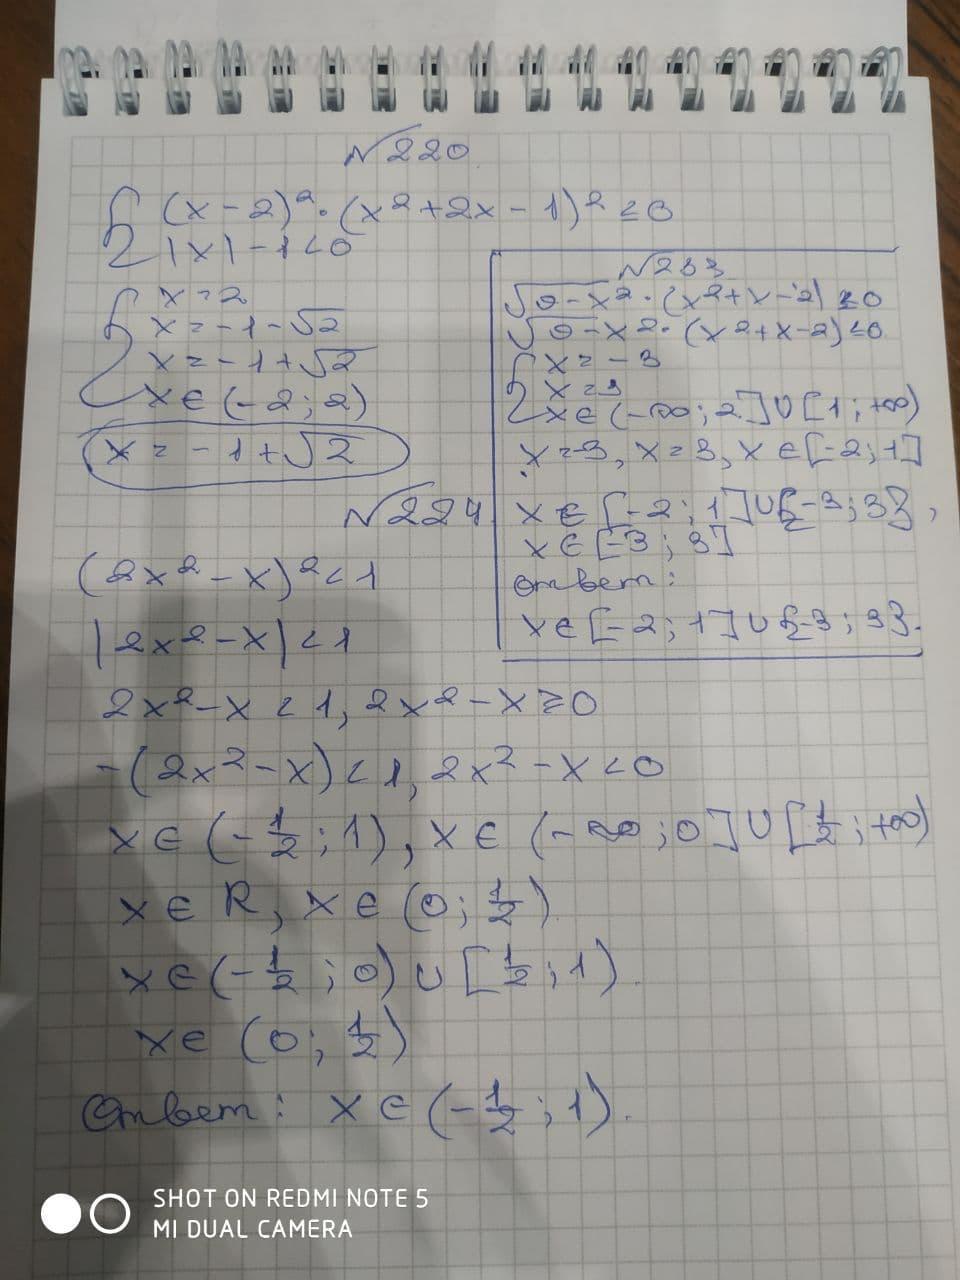 №220
(x-2)²·(x²+2x-1)²≤0
|x|-1<0
x=2
x=-1-√2
x=-1+√2
x∈(-2;2)
x=-1+√2
№233
√9-x²·(x²+x-2)≤0
√9-x²·(x²+x-2)≤0
x=-3
x=3
x∈(-∞;2]∪[1;+∞)
x=-3, x=3, x∈[-2;1]
x∈[-2;1]∪{-3;3},
x∈[-3;3]
Ответ:
x∈[-2;1]∪{-3;3}.
№224
(2x²-x)²<1
|2x²-x|<1
2x²-x<1, 2x²-x≥0
-(2x²-x)<1, 2x²-x<0
x∈(-1/2;1), x∈(-∞;0]∪[1/2;+∞)
x∈R, x∈(0;1/2)
x∈(-1/2;0)∪[1/2;1).
x∈(0;1/2)
Ответ: x∈(-1/2;1).
SHOT ON REDMI NOTE 5
MI DUAL CAMERA